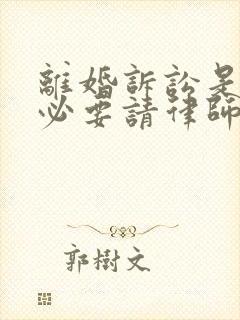 離婚訴訟是
必要請律師
郭樹文